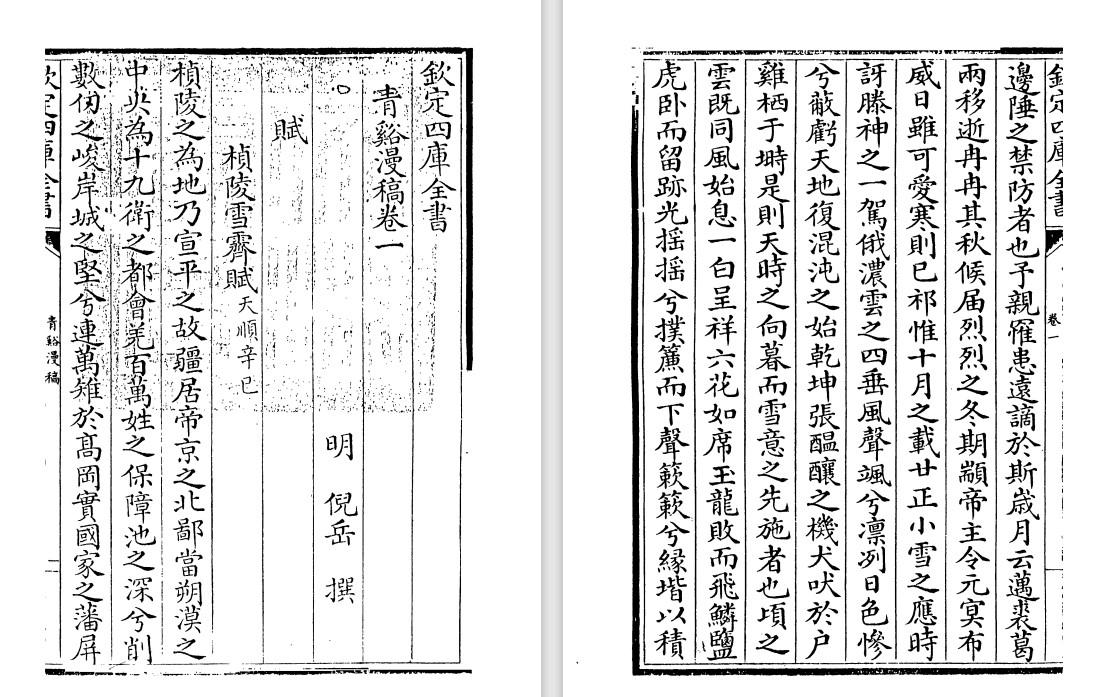 欽定四庫全書
青谿漫稿卷一
明 倪岳 撰
賦
楨陵雪霽賦天順辛巳
楨陵之為地乃宣平之故疆居帝京之北鄙當朔漠之
中央為十九衛之都會羌百萬姓之保障池之深兮削
數仞之峻岸城之堅兮連萬雉於高岡實國家之藩屏
欽定四庫全書
青谿漫稿
一
欽定四庫全書
卷一
邊陲之禁防者也予親罹患遠謫於斯歲月云邁裘葛
兩移逝冉冉其秋候届烈烈之冬期顓帝主令元冥布
威日雖可愛寒則已祁惟十月之載廿正小雪之應時
訝滕神之一駕俄濃雲之四垂風聲颯兮凛冽日色慘
兮蔽虧天地復混沌之始乾坤張醖釀之機犬吠於户
雞栖于塒是則天時之向暮而雪意之先施者也頃之
雲既同風始息一白呈祥六花如席玉龍敗而飛鱗鹽
虎卧而留跡光揺揺兮撲簾而下聲簌簌兮縁堦以積